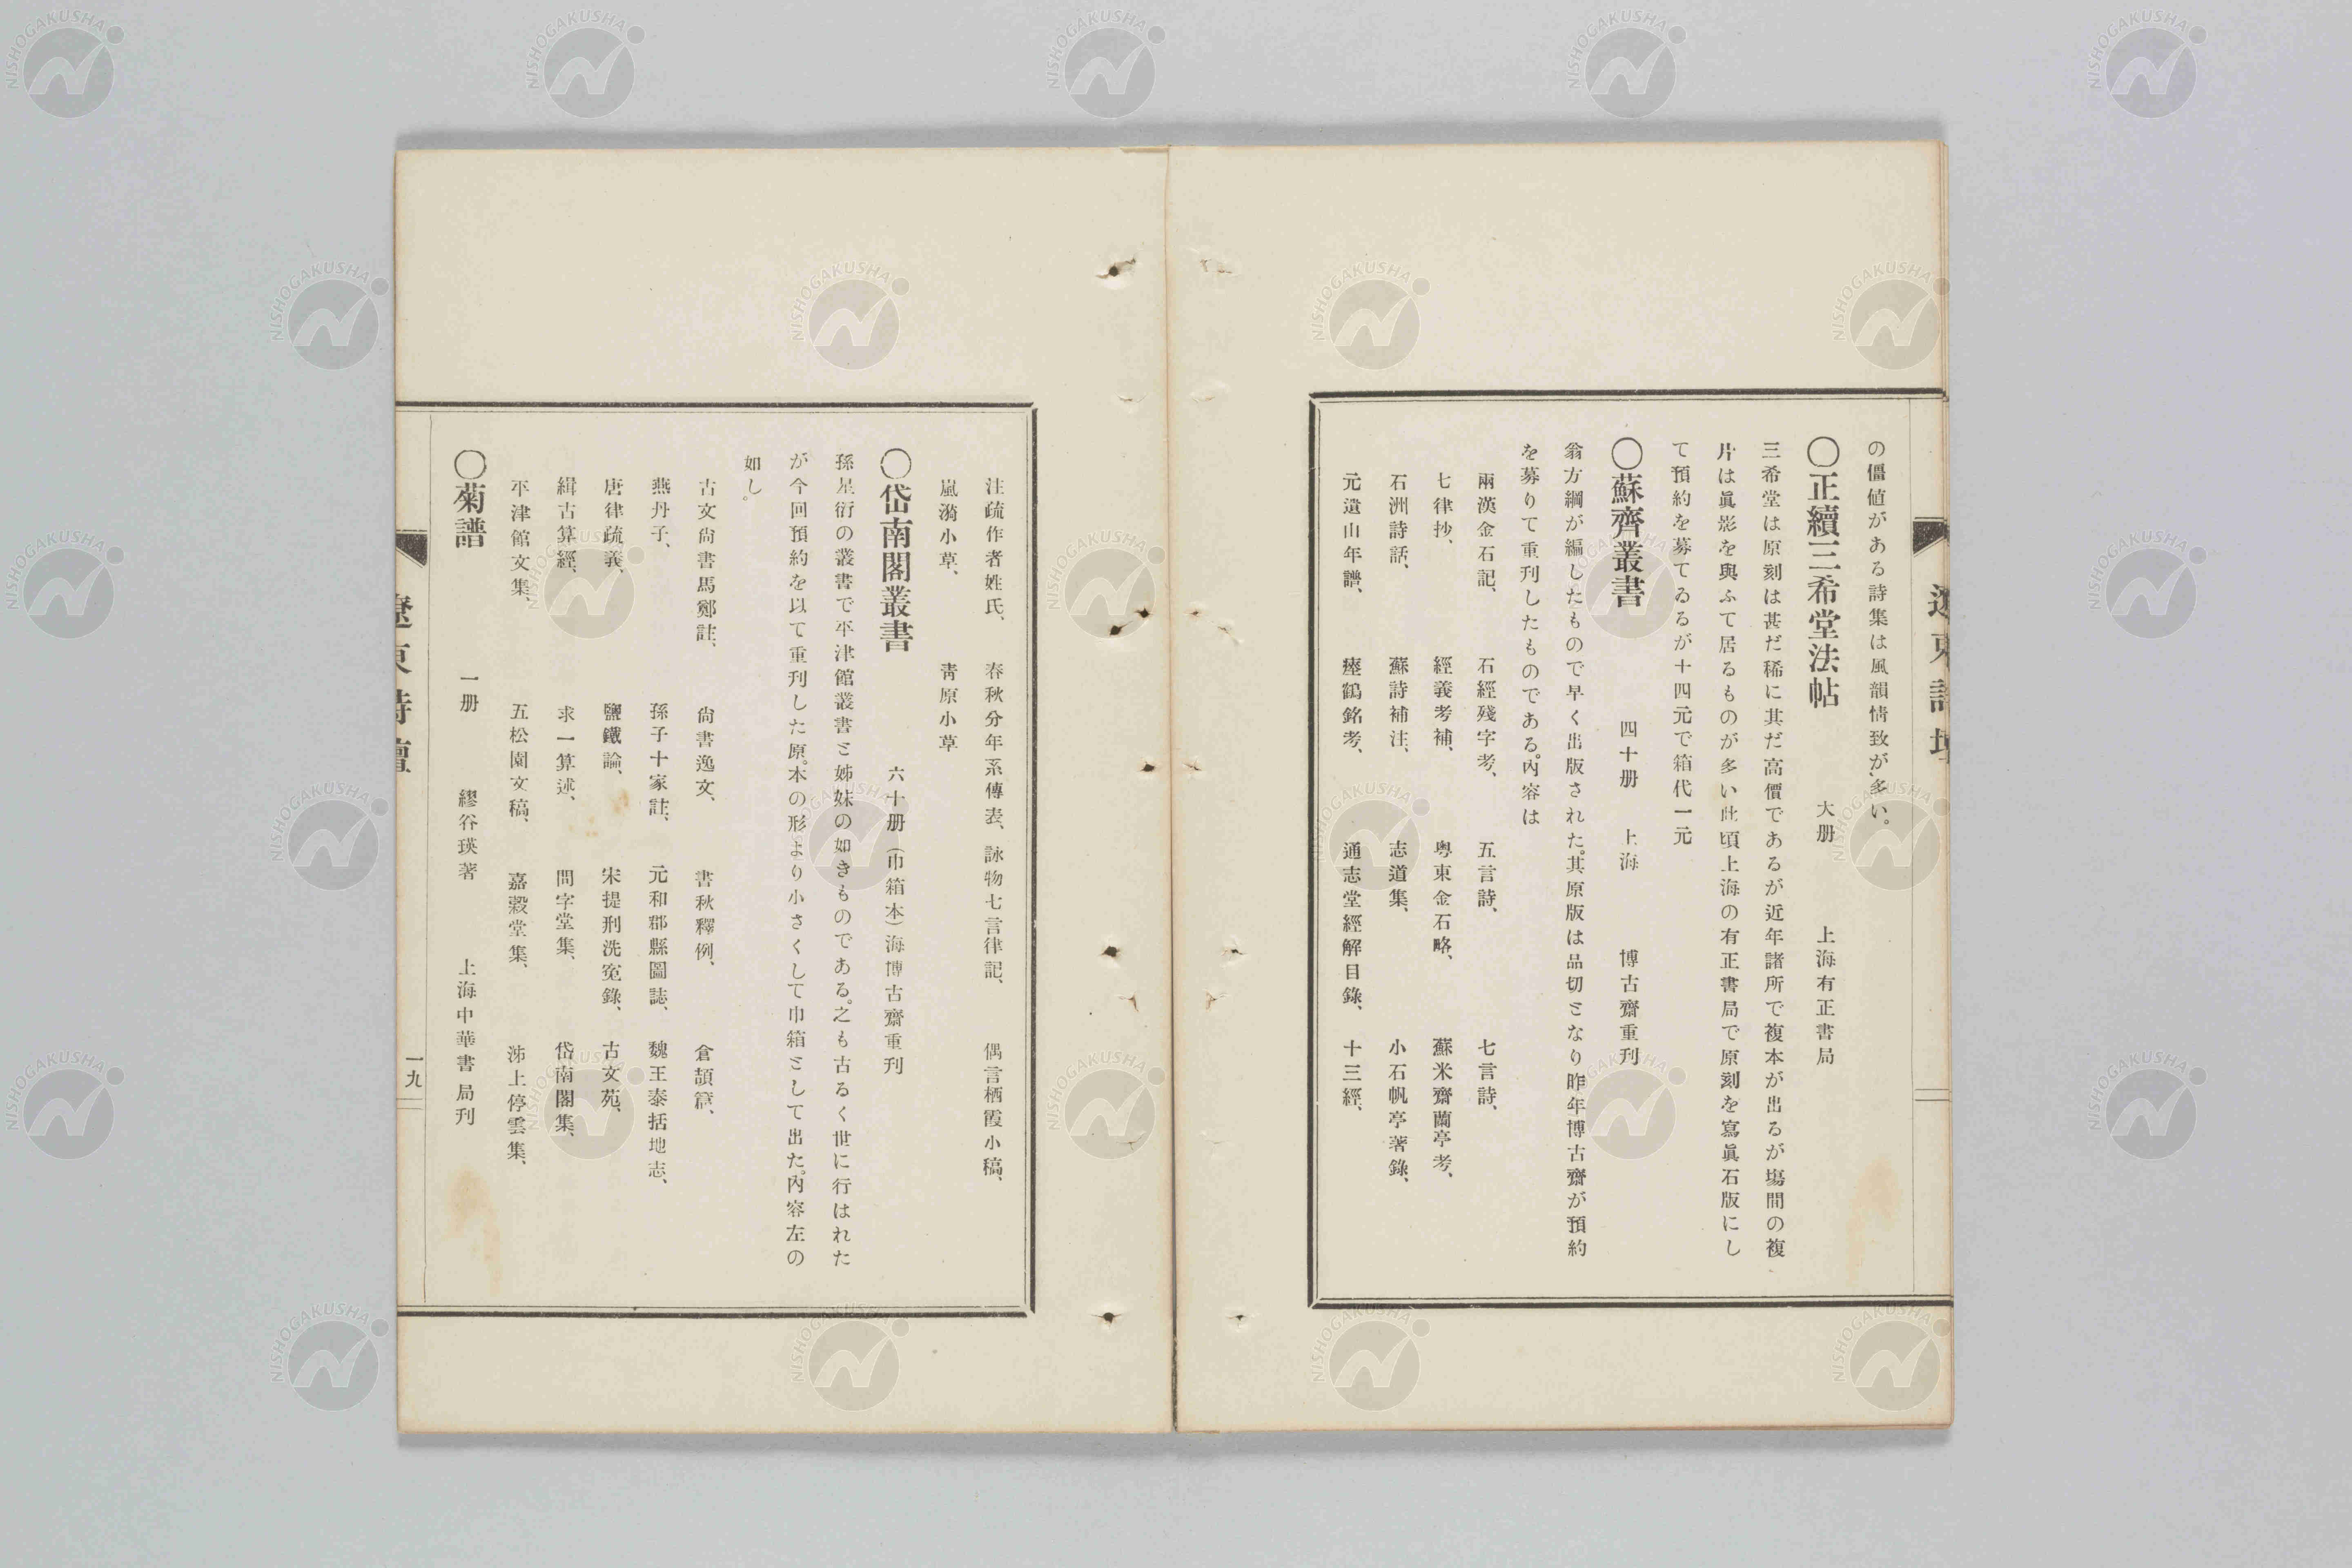 の僵値がある詩集は風韻情致が、多い。
〇正續三希堂法帖　大册　上海有正書局
三希堂は原刻は甚だ稀に其だ高價であるが近年諸所で複本が出るが塲間の複
片は眞影を與ふて居るものが多い此頃上海の有正書局で原刻を寫眞石版にし
て預約を募てゐるが十四元で箱代一元
〇蘇齊叢書　四十册　上海　博古齋重刊
翁方綱が編したもので早く出版された。其原版は品切となり昨年博古齋が預約
を募りて重刊したものである。內容は
兩漢金石記、　石經殘字考、　五言詩、　七言詩、
七律抄、　經義考補、　粤東金石略、　蘇米齋蘭亭考、
石洲詩話、　蘇詩補注、　志道集、　小石帆亭著錄、
元遺山年譜、　瘞鶴銘考、　通志堂經解目錄、　十三經、
注疏作者姓氏、　春秋分年系傳表、　詠物七言律記、　偶言栖霞小稿、
嵐漪小草、　靑原小草
〇岱南閣叢書　六十册（巾箱本）海博古齋重刊
孫星衍の叢書で平津館叢書と姊妹の如きものである。之も古るく世に行はれた
が今回預約を以て重刊した原。本の形より小さくして巾箱として出た。內容左の
如し。
古文尙書馬鄭註、　尙書逸文、　書秋釋例、　倉頡篇、
燕丹子、　孫子十家註、　元和郡縣圖誌、　魏王泰括地志、
唐律疏義、　鹽鐵論、　宋提刑洗寃錄、　古文苑、
緝古算經、　求一算述、　問字堂集、　岱南閣集、
平津館文集、　五松園文稿、　嘉穀堂集、　沸上停雲集、
〇菊譜　一册　繆谷瑛著　上海中華書局刊
遼東詩壇
一九
NISHOGAKUSHA